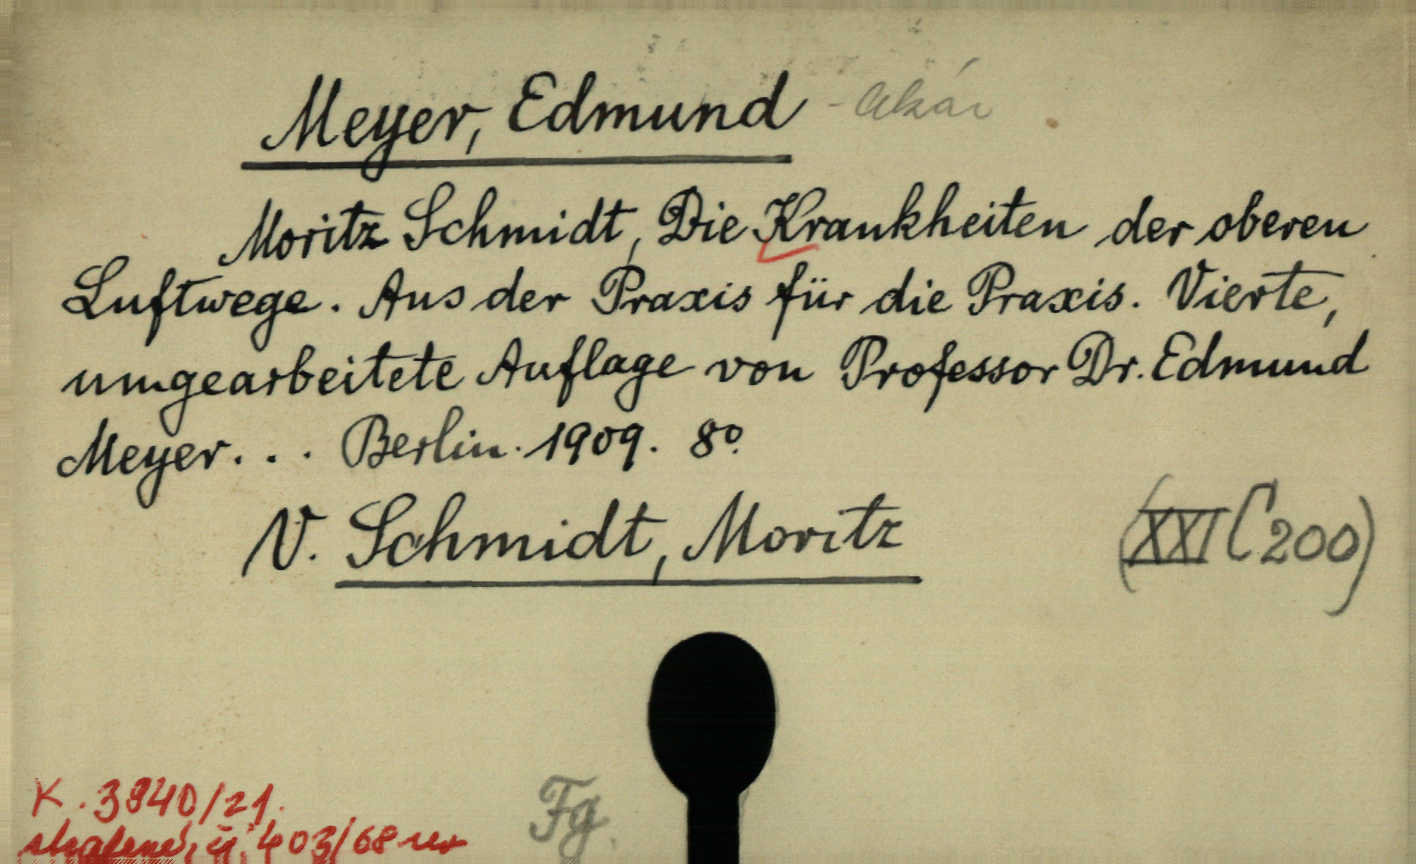 Meyer, Edmund - akár
Moritz Schmidt, Die Krankheiten der oberen
Luftwege. Aus der Praxis für die Praxis. Vierte,
umgearbeitete Auflage von Professor Dr. Edmund
Meyer... Berlin. 1909. 8°.
V. Schmidt, Moritz
(XXI C 200)
K. 3940/21.
403/68
Fg.